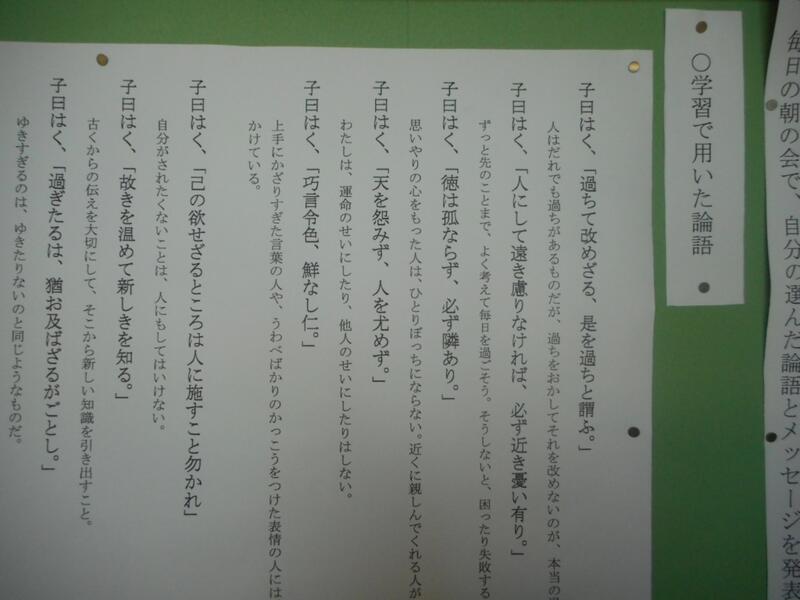 毎日の朝の会で、自分の選んだ論語とメッセージを発表
〇学習で用いた論語
子曰はく、「過ちて改めざる、是を過ちと謂ふ。」
人はだれでも過ちがあるものだが、過ちをおかしてそれを改めないのが、本当の
子曰はく、「人にして遠き慮りなければ、必ず近き憂い有り。」
ずっと先のことまで、よく考えて毎日を過ごそう。そうしないと、困ったり失敗する
子曰はく、「徳は孤ならず、必ず隣あり。」
思いやりの心をもった人は、ひとりぼっちにならない。近くに親しんでくれる人が
子曰はく、「天を怨みず、人を尤めず。」
わたしは、運命のせいにしたり、他人のせいにしたりはしない。
子曰はく、「巧言令色、鮮なし仁。」
上手にかざりすぎた言葉の人や、うわべばかりのかっこうをつけた表情の人には
かけている。
子曰はく、「己の欲せざるところは人に施すこと勿かれ」
自分がされたくないことは、人にもしてはいけない。
子曰はく、「故きを温めて新しきを知る。」
古くからの伝えを大切にして、そこから新しい知識を引き出すこと。
子曰はく、「過ぎたるは、猶お及ばざるがごとし。」
ゆきすぎるのは、ゆきたりないのと同じようなものだ。